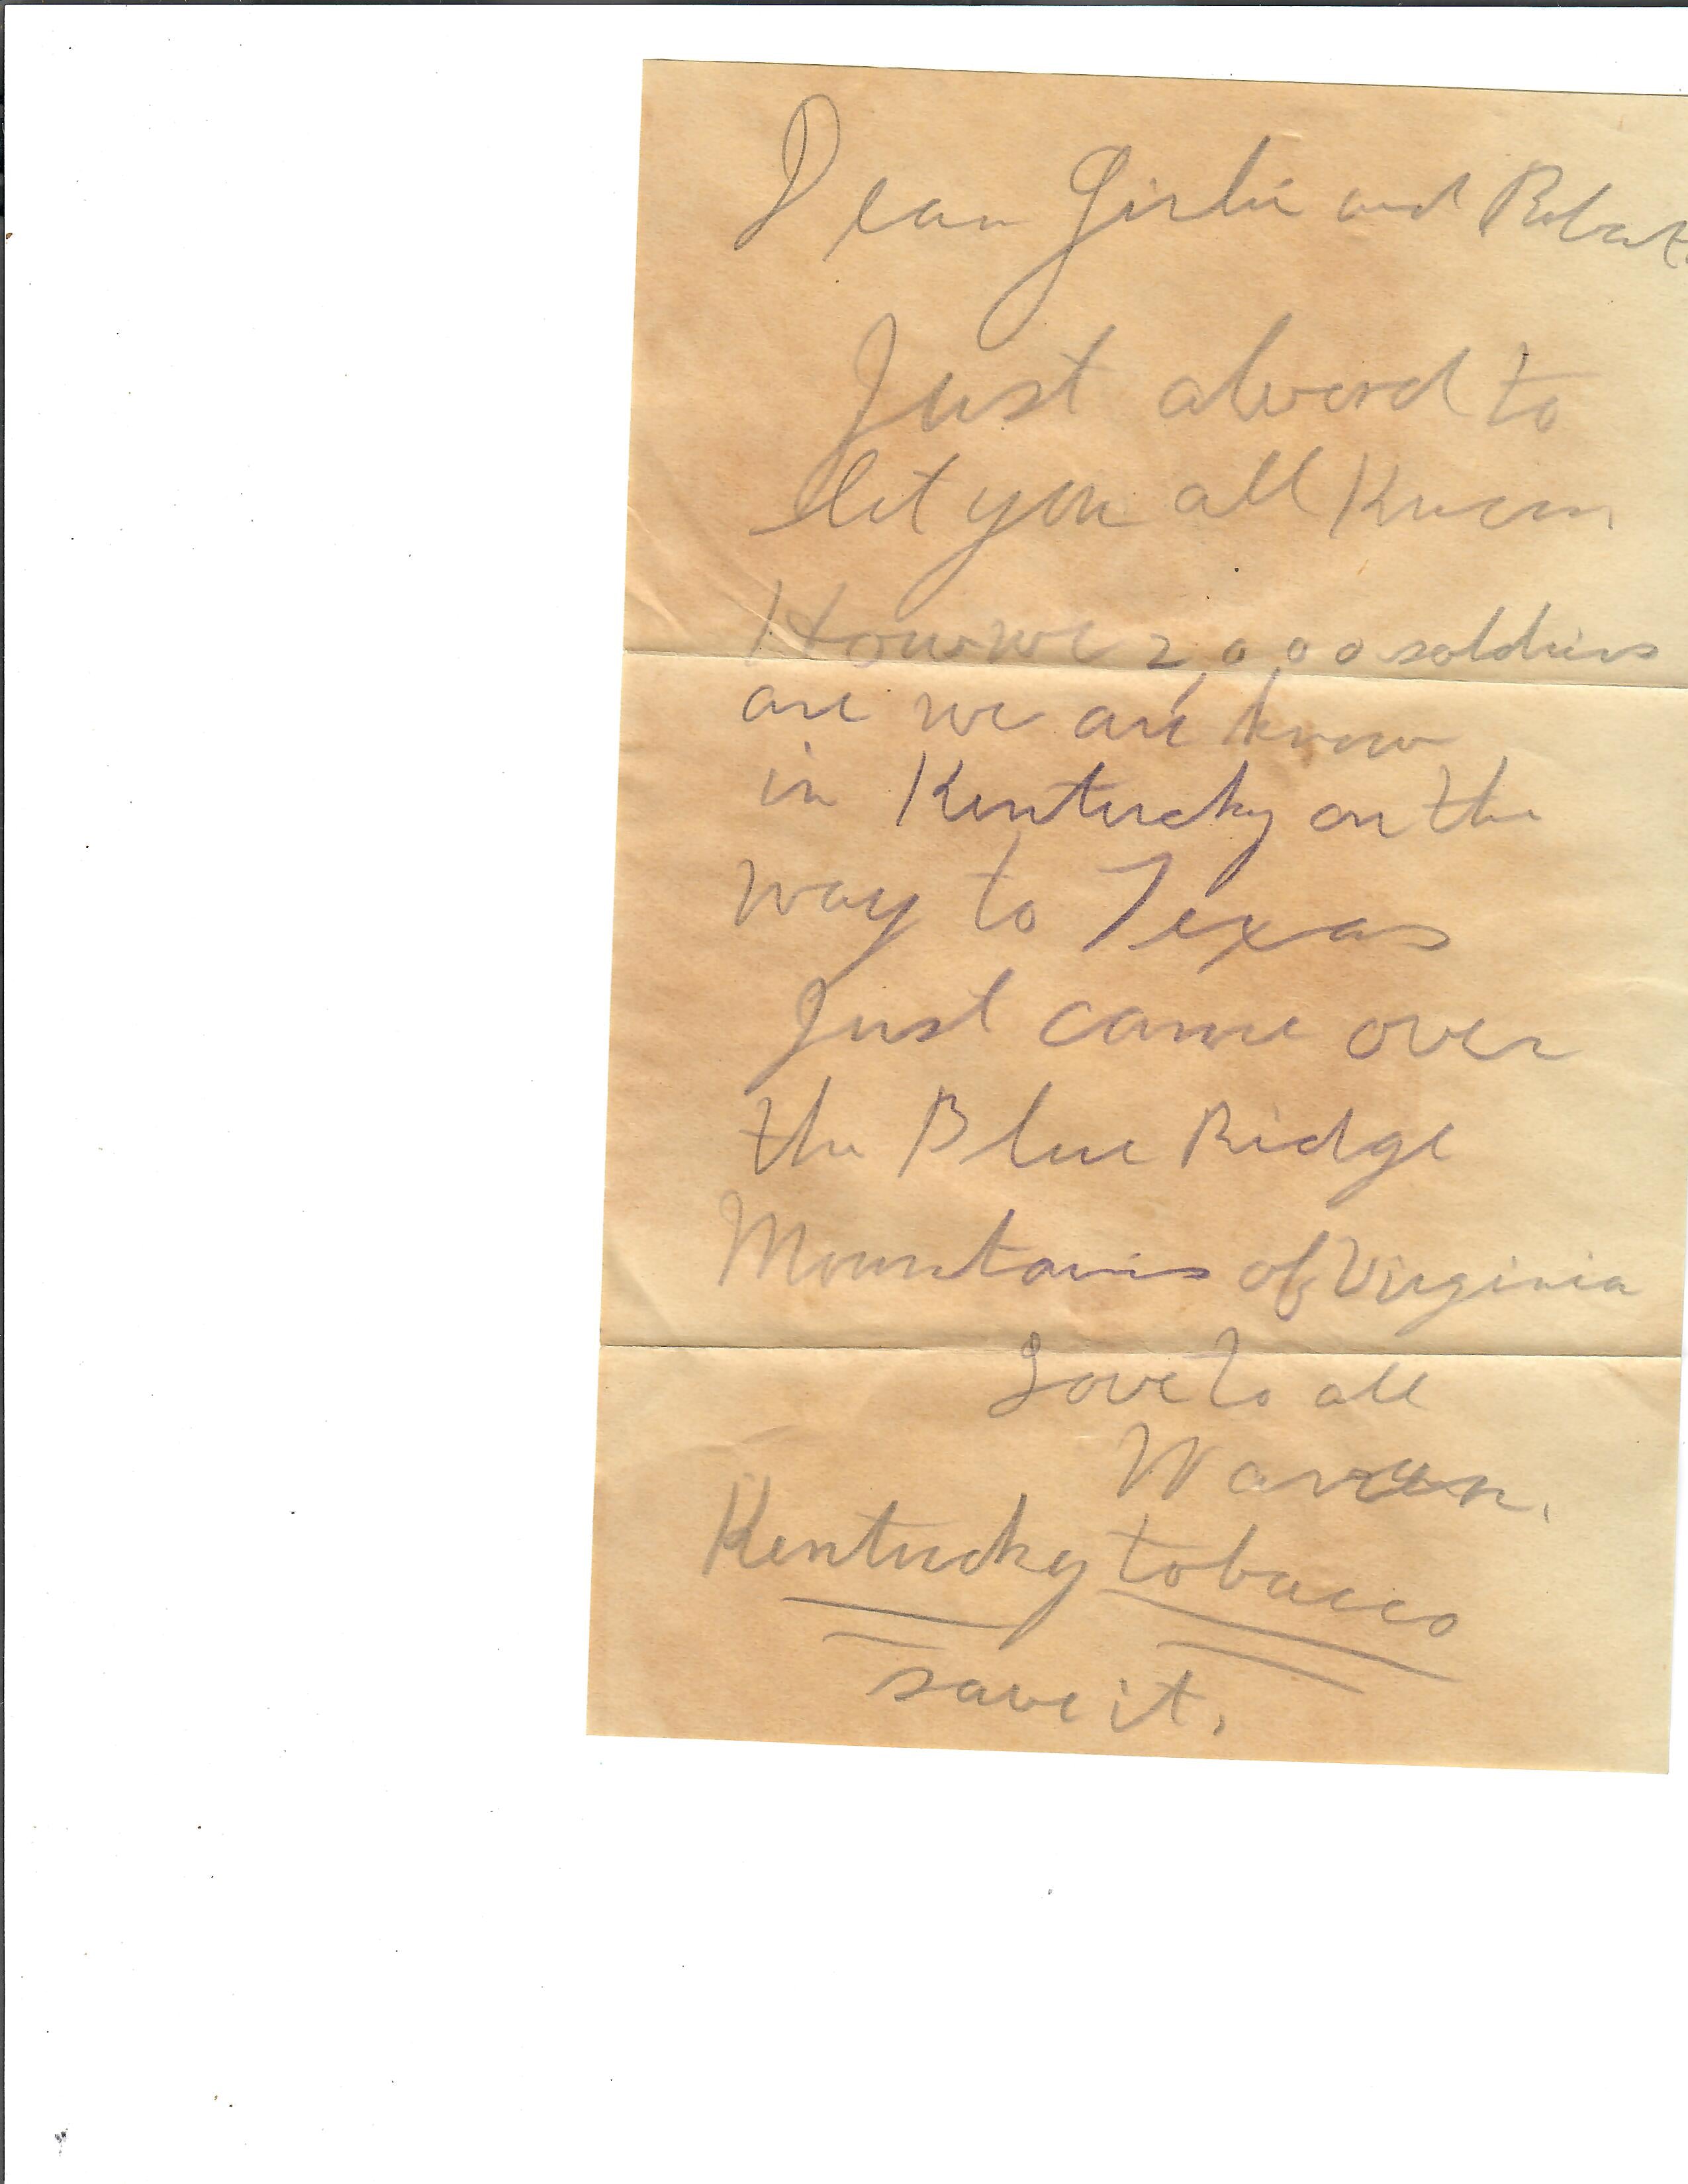 Dear Girlie and Robert.
Just aword to
let you all Know
How we 2,000 soldiers
are we are know
in Kentucky on the
way to Texas
Just came over
the Blue Ridge
Mountains of Virginia
Love to all
Warren.
Kentucky tobacco
save it.